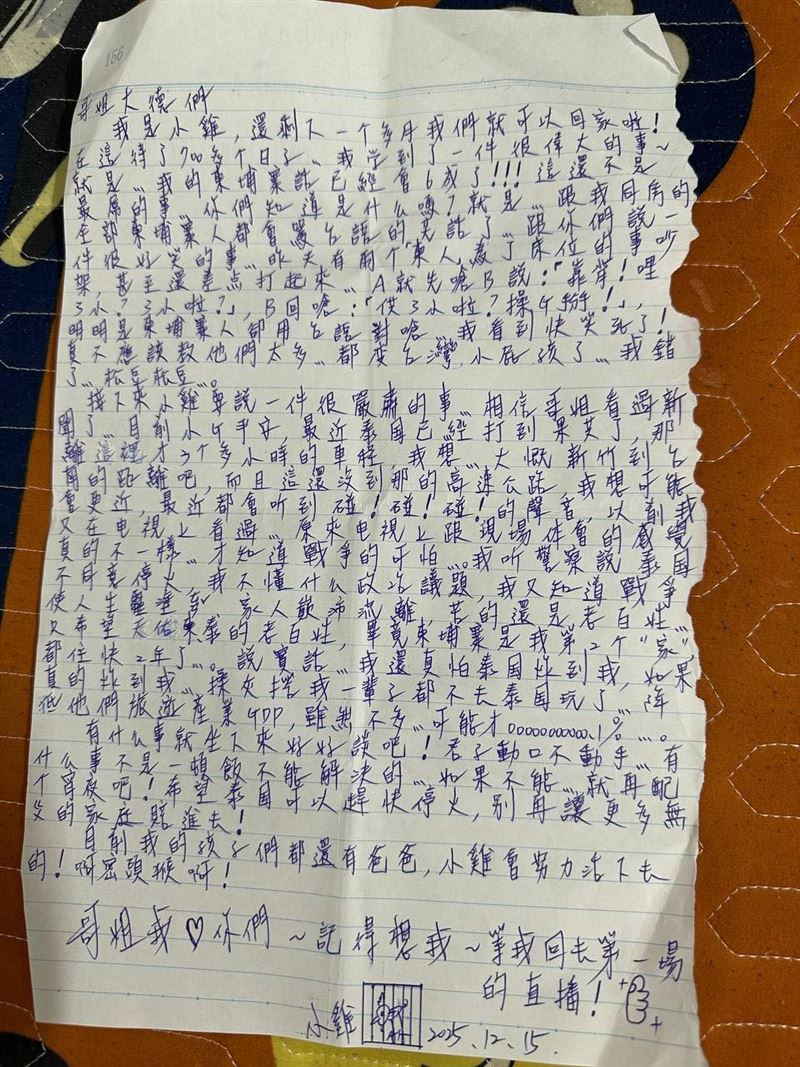 156
哥姐大德們
我是小雞,還剩下一個多月我們就可以回家啦!
在這待了700多個日子...我学到了一件很偉大的事~
就是...我的柬埔寨話已經會6成了!!!這還不是
最屌的事...你們知道是什么嗎?就是...跟我同房的
全部柬埔寨人都會罵台語的  話了...跟你們說一
件很好笑的事...昨天有兩个「柬人」為了床位的事吵
架,甚至還差点打起來...A就先嗆B說:「靠背!哩
3小?3小啦?」,B回嗆:「供3小啦?操G掰!」,
明明是柬埔寨人卻用台語對嗆...我看到快笑死了!
真不應該教他們太多...都变台灣小屁孩了...我錯
了...松豆松豆...。
接下來小雞要說一件很嚴肅的事...相信哥姐看過新
聞了...目前小G平安,最近泰国已經打到 艾了,那
離這裡才3个多小時的車程...我想...大慨新竹到台
南的距離吧,而且這還没到那的高速公路...我想可能
會更近,最近都會听到碰!碰!碰!的聲音,以前我
又在电視上看過...原來电視上跟現場体會的感覺
真的不一樣...才知道戰爭的可怕...。我听警察說泰国
不同意停火,我不懂什么政治議題,我又知道戰爭
使人生靈塗 ,家人顛沛流離,苦的還是老百姓...
又希望天佑柬泰的老百姓,畢竟柬埔寨是我第2个"家",
都住快2年了...。說實話...我還真怕泰国炸到我,如果
真的炸到我...操 我一輩子都不去泰国玩了...降
低他們旅遊產業GDP,雖然不多...可能才0.000000000001%...。
有什么事就坐下來好好談吧!君子動口不動手...有
什么事不是一頓飯不能解決的...如果不能...就再配
个宵夜吧!希望泰国可以趕快停火,別再讓更多無
的家庭賠進去!
目前我的孩子們都還有爸爸,小雞會努力活下去
的!啊密頭猴啊!
哥姐我♡你們~記得想我~等我回去第一場
的直播!
小雞 2025.12.15.